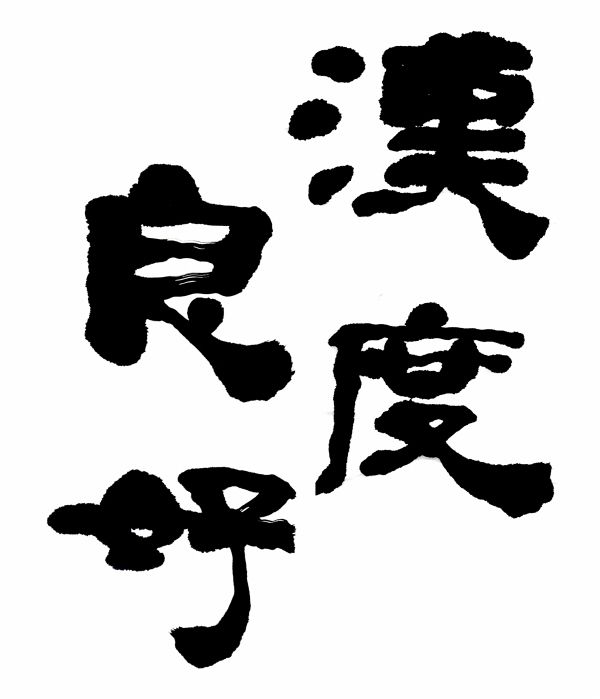 漢度
良好